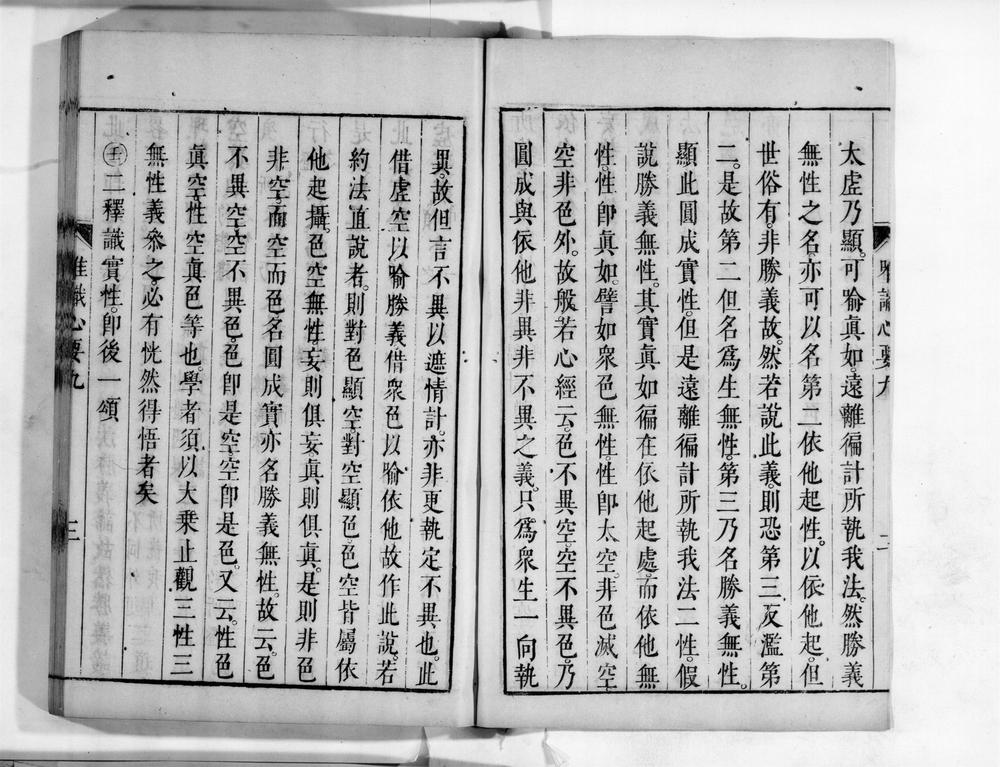 太虛乃顯。可喻眞如。遠離徧計所執我法。然勝義
無性之名。亦可以名第二依他起性。以依他起。但
世俗有。非勝義故。然若說此義。則恐第三反濫第
二。是故第二但名爲生無性。第三乃名勝義無性。
顯此圓成實性。但是遠離徧計所執我法二性。假
說勝義無性。其實眞如徧在依他起處。而依他無
性。性卽眞如。譬如衆色無性。性卽太空。非色滅空
空非色外。故般若心經云。色不異空。空不異色。乃
圓成與依他非異非不異之義。只爲衆生一向執
唯識心要九
二
異。故但言不異以遮情計。亦非更執定不異也。此
借虛空以喻勝義借衆色以喻依他故作此說。若
約法直說者。則對色顯空。對空顯色。色空皆屬依
他起攝。色空無性。妄則俱妄。眞則俱眞。是則非色
非空。而空而色。名圓成實。亦名勝義無性。故云。色
不異空。空不異色。色卽是空。空卽是色。又云。性色
眞空。性空眞色等也。學者須以大乘止觀三性三
無性義參之。必有恍然得悟者矣
㊂二釋識實性。卽後一頌
唯識心要九
三